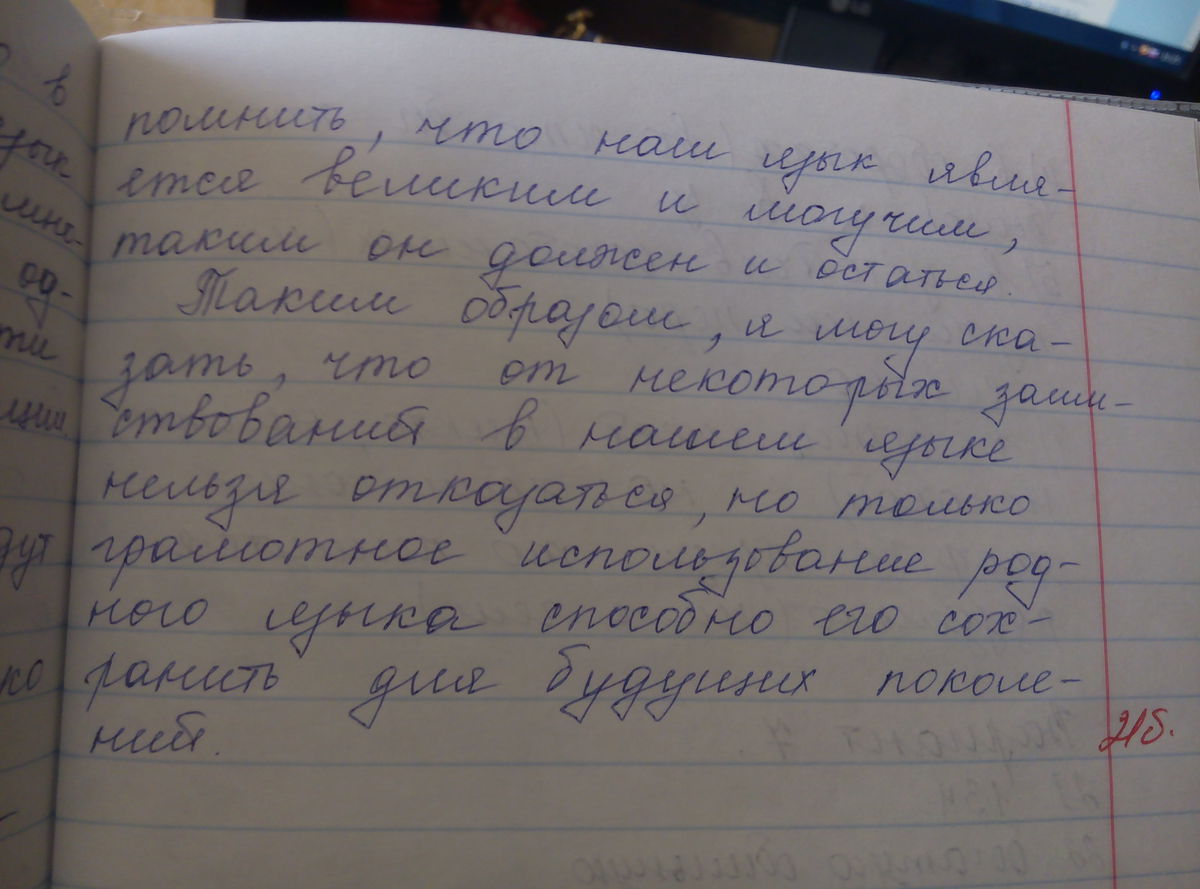 помнить, что наш язык явля-
ется великим и могучим,
таким он должен и остаться.
Таким образом, я могу ска-
зать, что от некоторых заим-
ствований в нашем языке
нельзя отказаться, но только
грамотное использование род-
ного языка способно его сох-
ранить для будущих поколе-
ний.
21б.
в
язык
од-
ти
дут
ко
LG